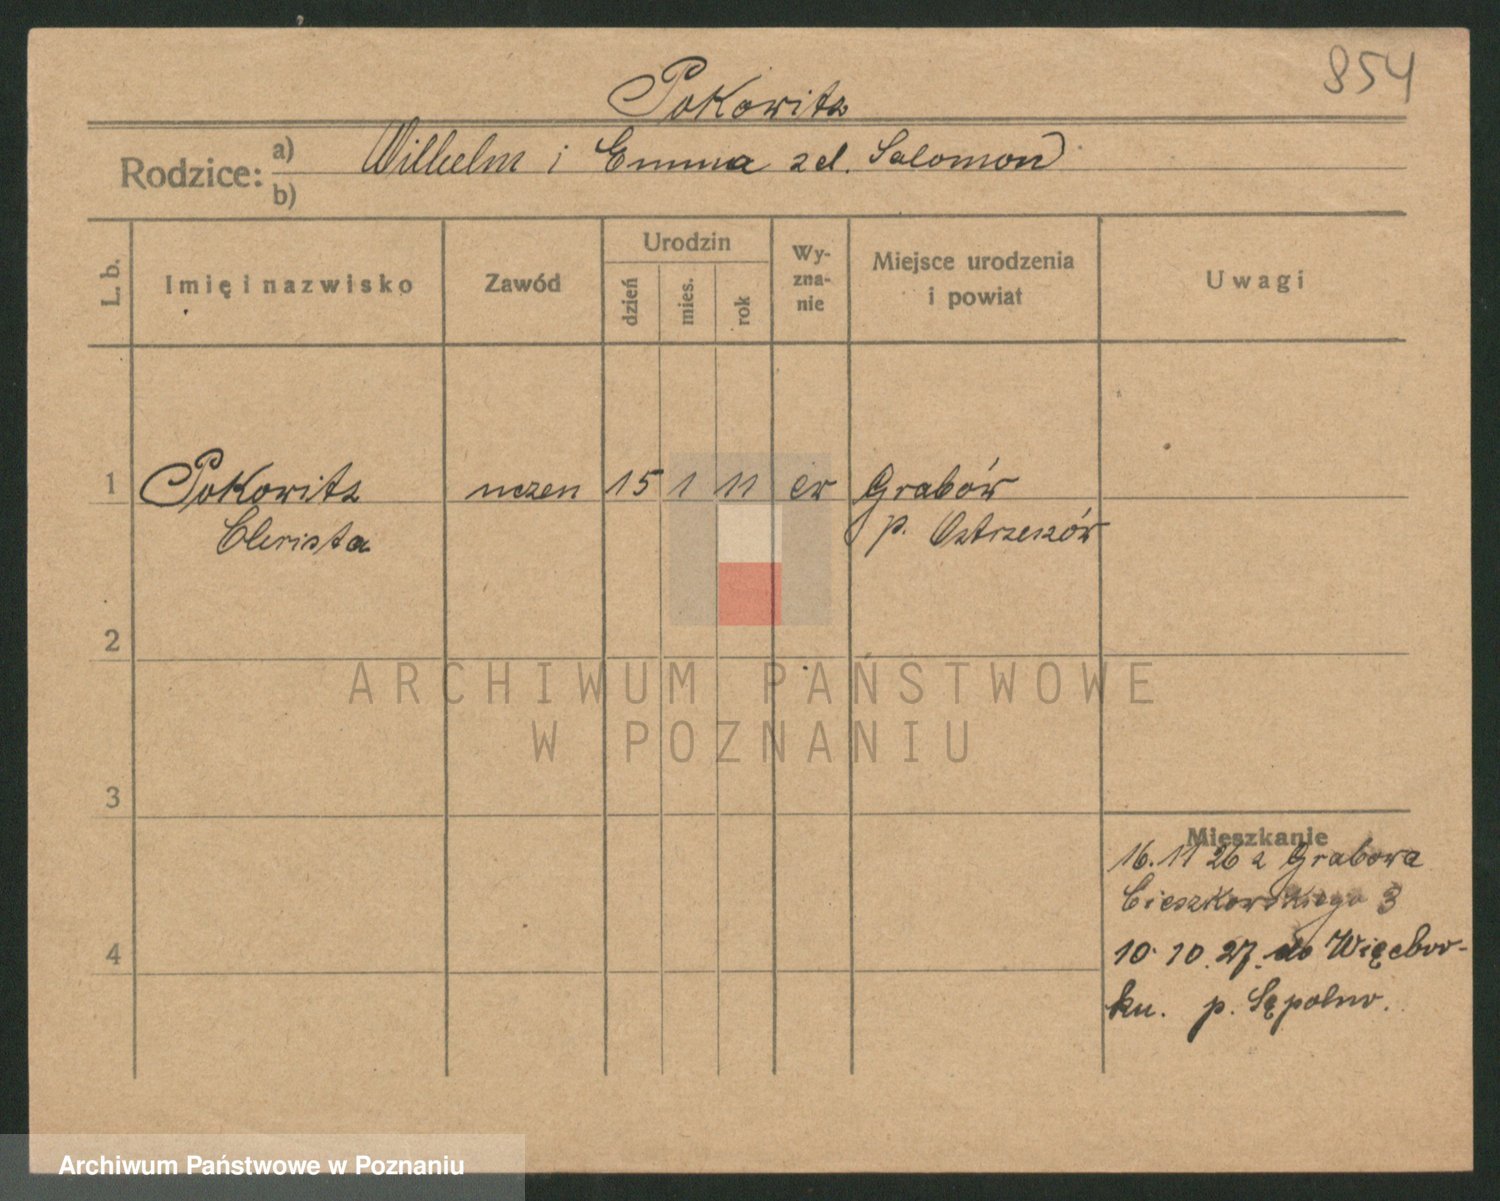 854
Pokowitz
Rodzice: a) Wilhelm i Emma zd. Salomon
b)
L. b. Imię i nazwisko Zawód Urodzin dzień mies. rok Wyzna-nie Miejsce urodzenia i powiat Uwagi
1 Pokowitz uczen 15 1 11 ew Grabów
p. Ostrzeszów
2
ARCHIWUM PAŃSTWOWE
W POZNANIU
3
Mieszkanie
16. 11 26 z Grabowa
Cieszkowskiego 3
4
10. 10. 27. do Więcbor-
ku. p. Sępolno.
Archiwum Państwowe w Poznaniu